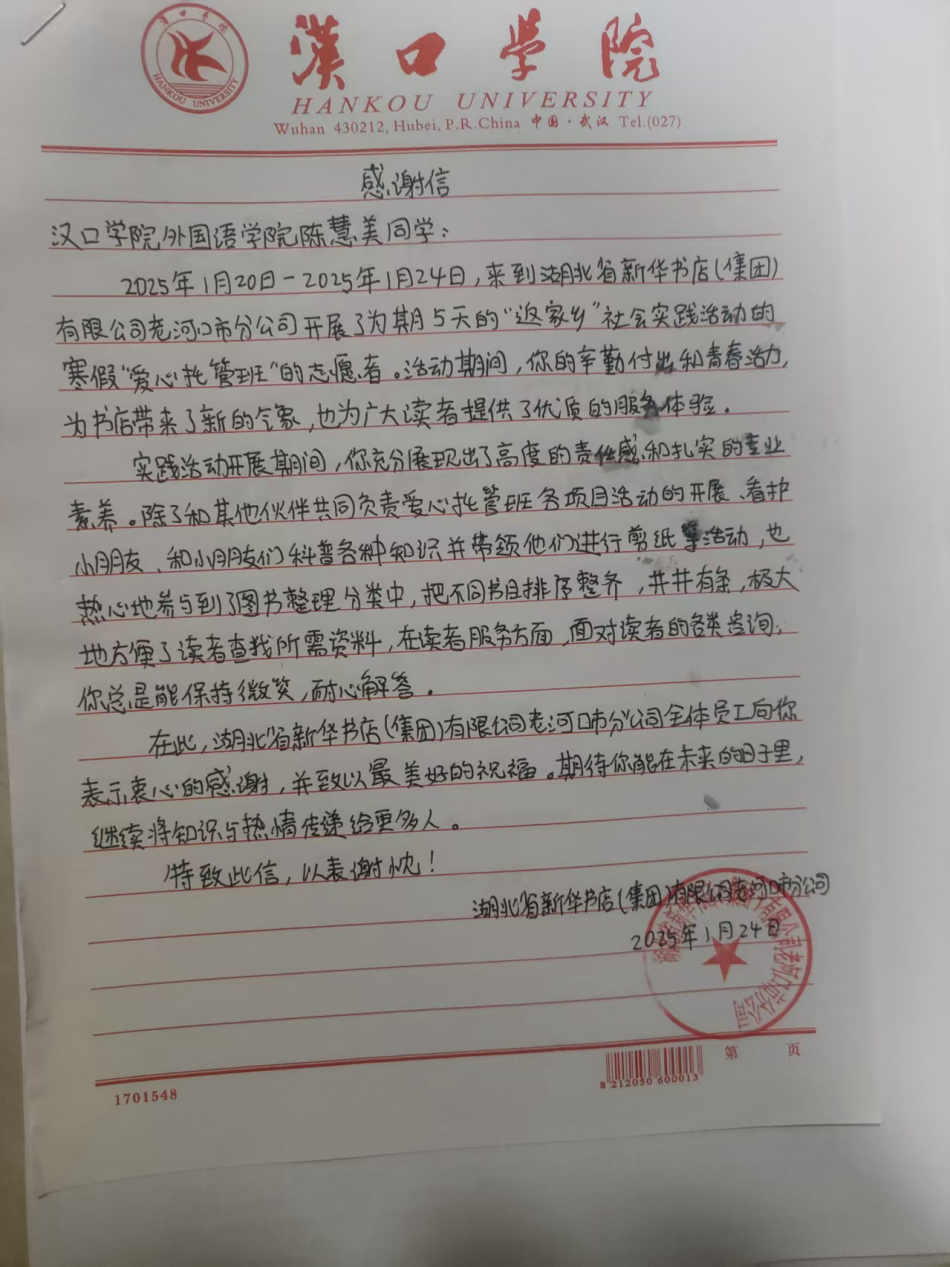 漢口學院
HANKOU UNIVERSITY
HANKOU UNIVERSITY
Wuhan 430212, Hubei, P.R.China 中国·武汉 Tel.(027)
感谢信
汉口学院外国语学院陈慧美同学：
2025年1月20日-2025年1月24日，来到湖北省新华书店(集团)
有限公司老河口市分公司开展了为期5天的“返家乡”社会实践活动的
寒假“爱心托管班”的志愿者。活动期间，你的辛勤付出和青春活力，
为书店带来了新的气象，也为广大读者提供了优质的服务体验。
实践活动开展期间，你充分展现出了高度的责任感和扎实的专业
素养。除了和其他伙伴共同负责爱心托管班各项目活动的开展、看护
小朋友、和小朋友们科普各种知识并带领他们进行剪纸等活动，也
热心地参与到了图书整理分类中，把不同书目排序整齐，井井有条，极大
地方便了读者查找所需资料，在读者服务方面，面对读者的各类咨询，
你总是能保持微笑，耐心解答。
在此，湖北省新华书店(集团)有限公司老河口市分公司全体员工向你
表示衷心的感谢，并致以最美好的祝福。期待你能在未来的日子里，
继续将知识与热情传递给更多人。
特致此信，以表谢忱！
湖北省新华书店(集团)有限公司老河口市分公司
2025年1月24日
第 页
8 212050 600013
1701548